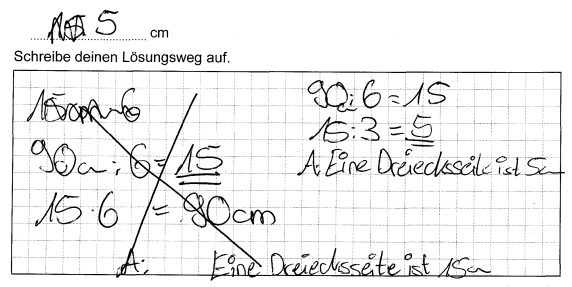 5 cm
Schreibe deinen Lösungsweg auf.
15cm · 6
90cm : 6 = 15
15 · 6 = 90cm
A: Eine Dreiecksseite ist 15cm
90 : 6 = 15
15 : 3 = 5
A: Eine Dreiecksseite ist 5cm